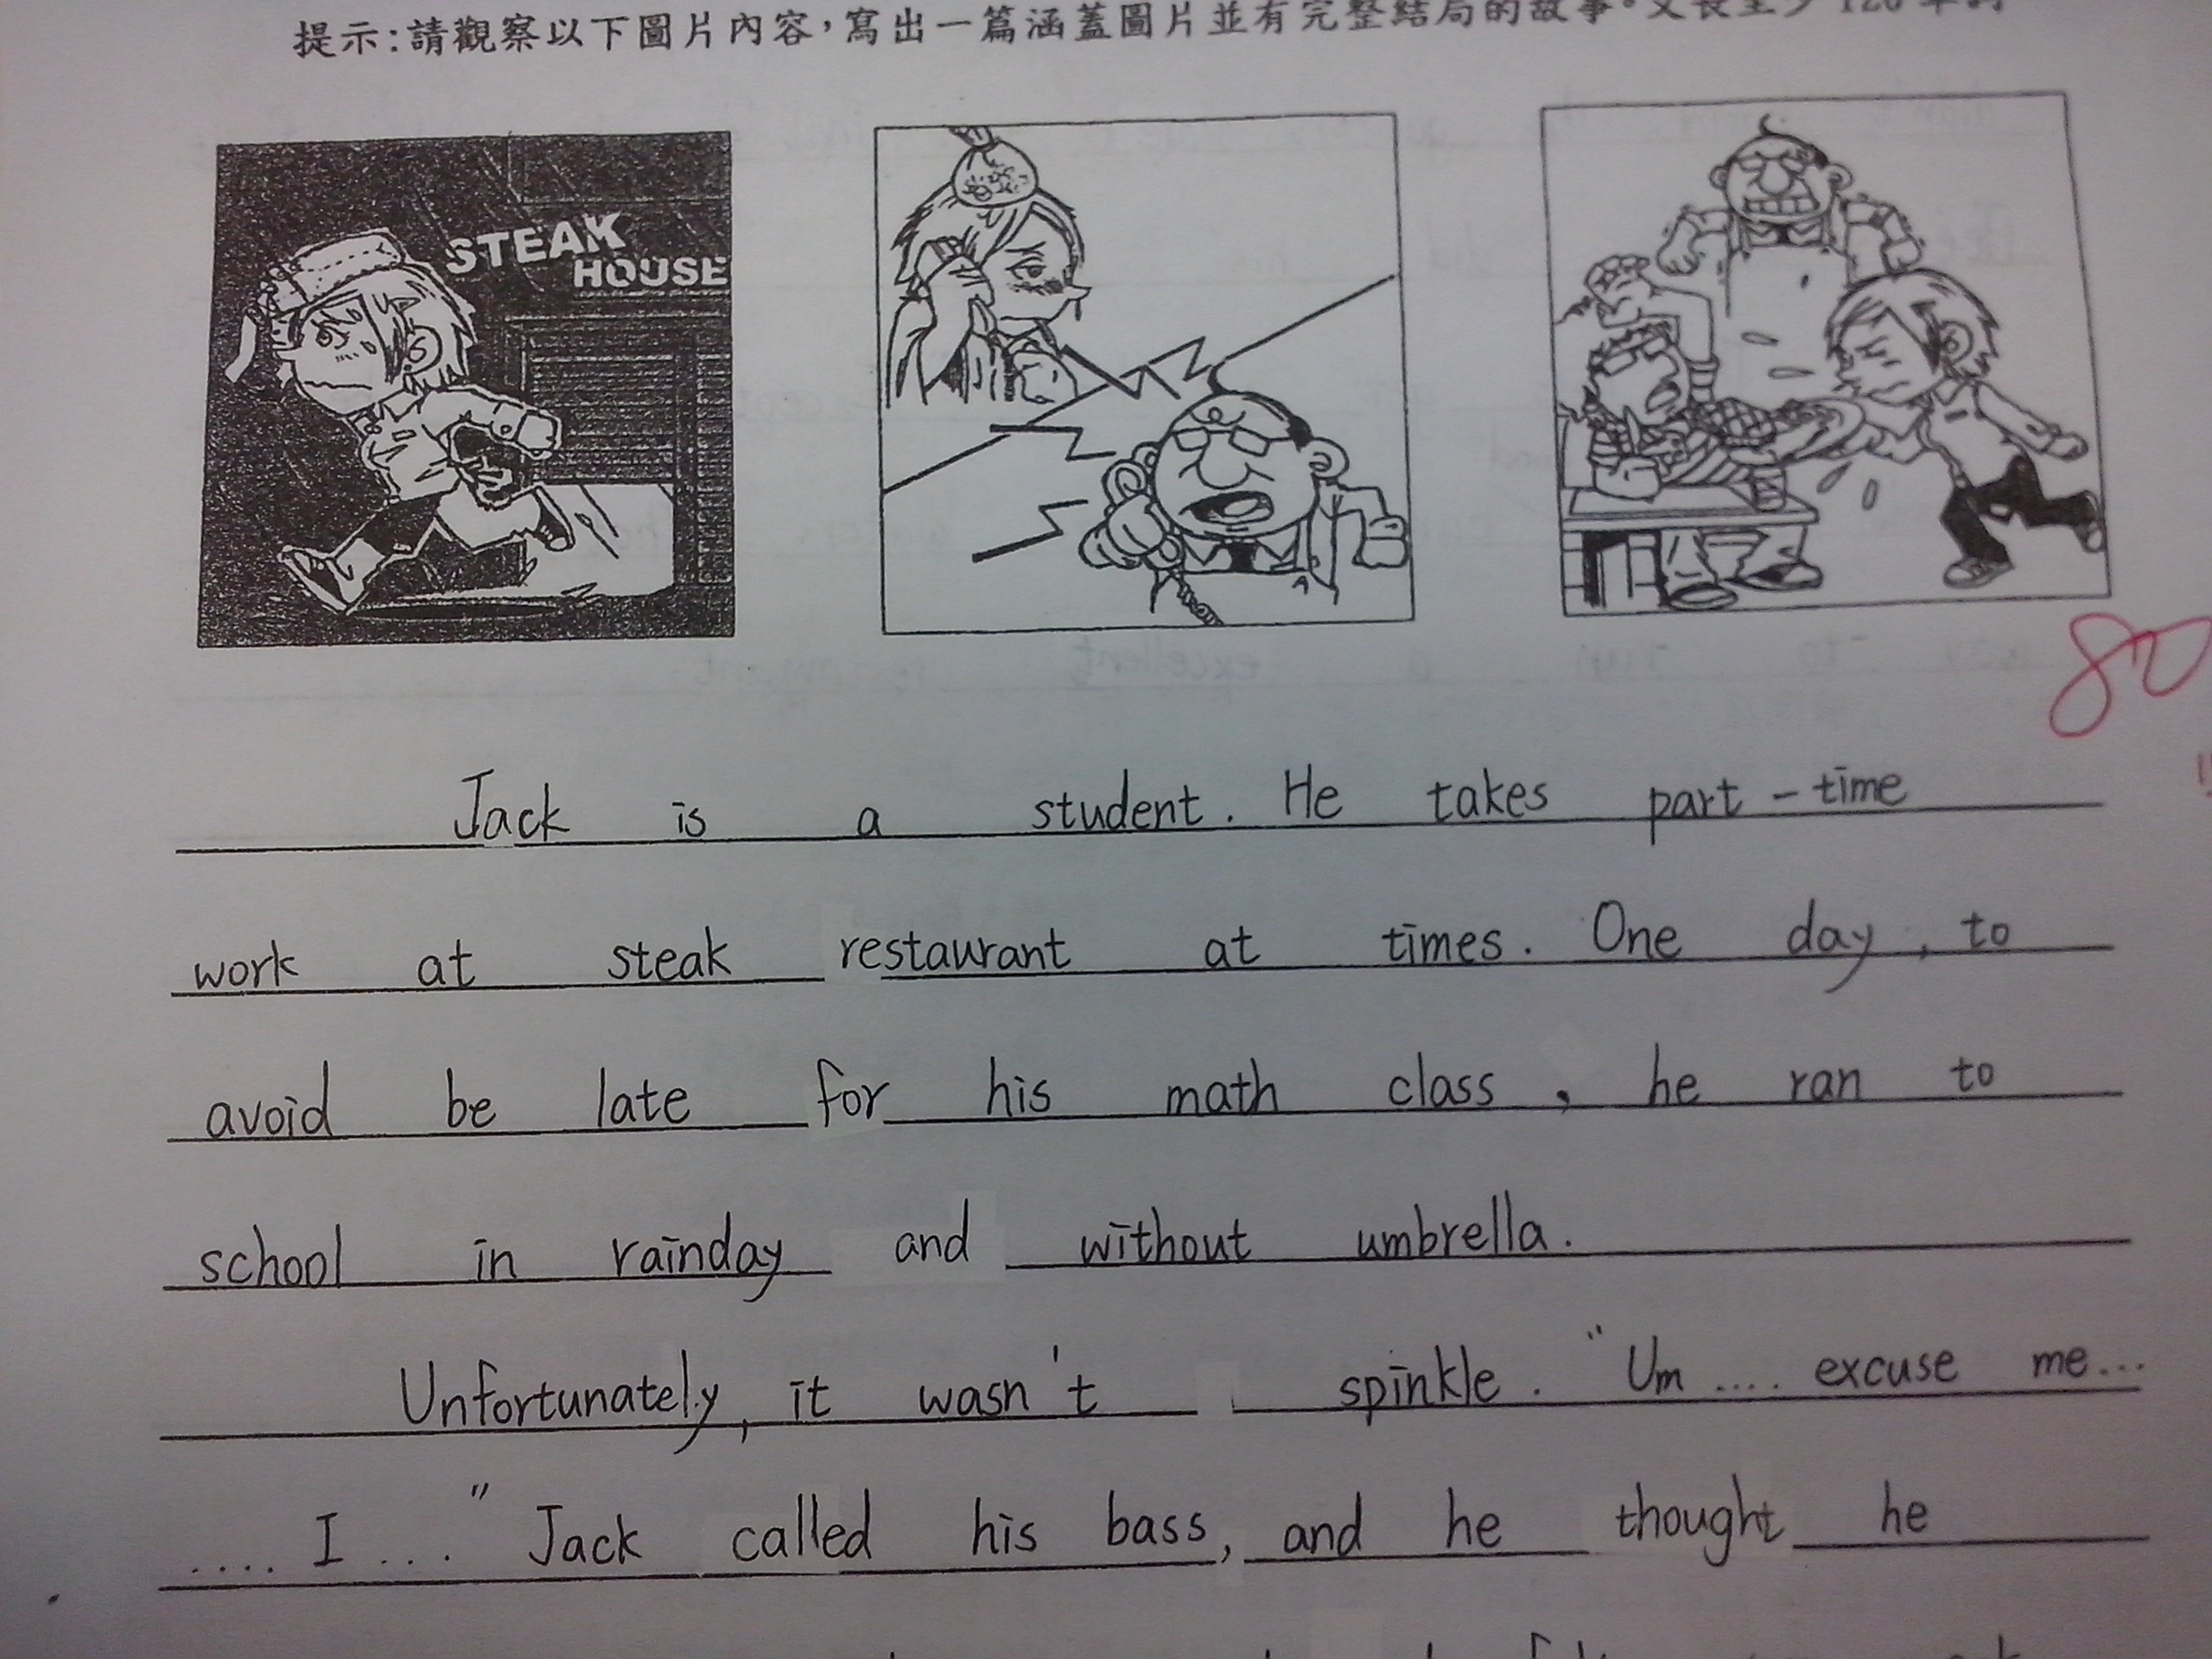 提示:請觀察以下圖片內容,寫出一篇涵蓋圖片並有完整結局的故事。文長至少 120 單詞
STEAK
HOUSE
80
Jack is a student. He takes part-time
work at steak restaurant at times. One day, to
avoid be late for his math class, he ran to
school in rainday and without umbrella.
Unfortunately, it wasn't spinkle. "Um .... excuse me...
.... I ...." Jack called his bass, and he thought he